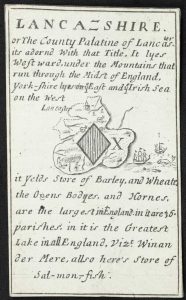 LANCASHIRE.
or The County Palatine of Lancas
ter
its adorn'd With that Title. It lyes
West ward under the Mountains that
run through the Midst of England.
York-shire lyes on y East and Irish Sea
on the West
Lancaster
X
it yelds Store of Barley, and Wheate,
the Oxens Bodyes, and Hornes,
are the largest in England in it are 36
parishes in it is the Greatest
Lake in all England, Viz. Winan
der Mere, allso here's Store of
Sal-mon-fish.